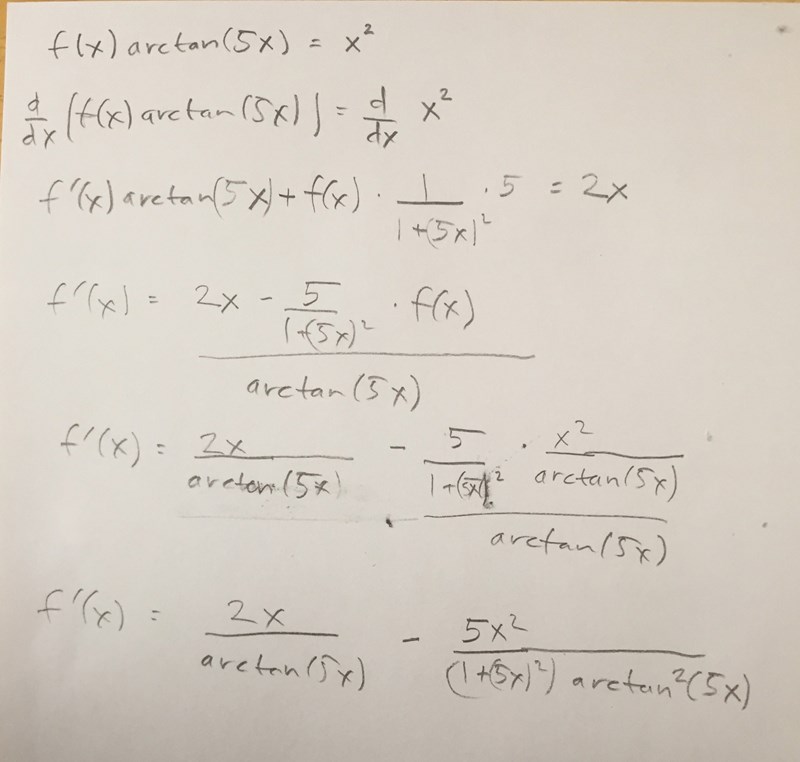 f(x) arctan(5x) = x²
d/dx [f(x) arctan(5x)] = d/dx x²
f'(x) arctan(5x) + f(x) · 1/(1+(5x)²) · 5 = 2x
f'(x) = (2x - 5/(1+(5x)²) · f(x))/arctan(5x)
f'(x) = 2x/arctan(5x) - (5/(1+(5x)²) · x²/arctan(5x))/arctan(5x)
f'(x) = 2x/arctan(5x) - 5x²/((1+(5x)²) arctan²(5x))